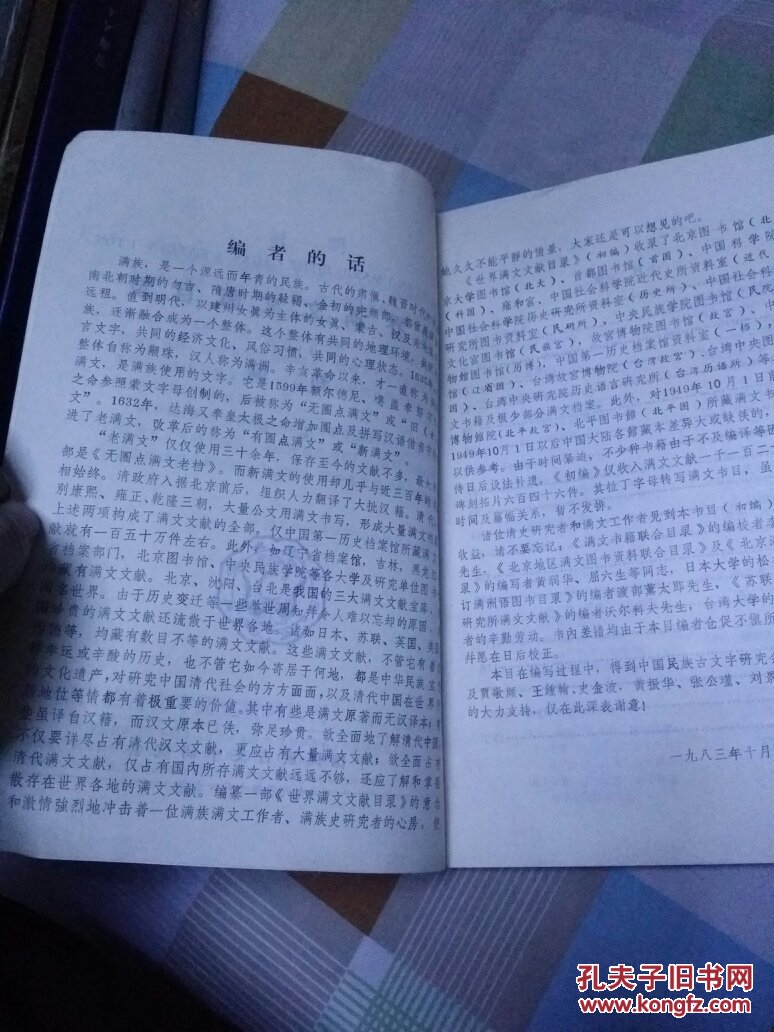 编者的话
满族，是一个源远而年青的民族。古代的肃慎、魏晋时代
南北朝时期的勿吉、隋唐时期的靺鞨、金初的完颜部，都曾是
远祖。直到明代，以建州女真为主体的女真、蒙古、汉及
族，逐渐融合成为一个整体。这个整体有共同的地理环境，共同
言文字，共同的经济文化、风俗习惯，共同的心理状态。1635年
整体自称为颇珠，汉人称为满洲。辛亥革命以来，才一直称为满
满文，是满族使用的文字。它是1599年额尔德尼、噶盖奉努尔
之命参照蒙文字母创制的，后被称为“无圈点满文”或“旧（老）
文”。1632年，达海又奉皇太极之命增加圈点及拼写汉语借音字
进了老满文，改革后的称为“有圈点满文”或“新满文”。
“老满文”仅仅使用三十余年，保存至今的文献不多，最大
部是《无圈点满文老档》。而新满文的使用却几乎与近三百年的
相始终。清政府入据北京前后，组织人力翻译了大批汉籍。清代
别康熙、雍正、乾隆三朝，大量公文用满文书写，形成大量满文档
上述两项构成了满文文献的全部，仅中国第一历史档案馆所藏满文
献就有一百五十万件左右。此外，如辽宁省档案馆，吉林，黑龙江
省档案部门，北京图书馆、中央民族学院等各大学及研究单位图书
收藏有满文文献。北京、沈阳、台北是我国的三大满文文献宝库，
闻名世界。由于历史变迁等一些举世周知并令人难以忘却的原因，
国珍贵的满文文献还流散于世界各地。诸如日本、苏联、英国、美国
德等，均藏有数目不等的满文文献。这些满文文献，不管它有着
幸运或辛酸的历史，也不管它如今寄居于何地，都是中华民族宝
的文化遗产，对研究中国清代社会的方方面面，以及清代中国在世界
地位等情都有着极重要的价值。其中有些是满文原著而无汉译本；有
些虽译自汉籍，而汉文原本已佚，弥足珍贵。欲全面地了解清代中国
不仅要详尽占有清代汉文文献，更应占有大量满文文献；欲全面占有
清代满文文献，仅占有国内所存满文文献远远不够，还应了解和掌握
散存在世界各地的满文文献。编纂一部《世界满文文献目录》的意
和激情强烈地冲击着一位满族满文工作者、满族史研究者的心房，使
她久久不能平静的情景，大家还是可以想见的吧。
《世界满文文献目录》（初编）收录了北京图书馆（北
京大学图书馆（北大）、首都图书馆（首图）、中国科学院
（科图）、雍和宫、中国社会科学院近代史所资料室（近代
中国社会科学院历史研究所资料室（历史所）、中国社会科
研究所图书资料室（民研所）、中央民族学院图书馆（民院
文化宫图书馆（民族宫）、故宫博物院图书馆（故宫）、
物馆图书馆（历博）、中国第一历史档案馆资料室（一档），
馆（辽省图）、台湾故宫博物院（台湾故宫）、台湾中央图
图）、台湾中央研究院历史语言研究所（台湾历语所）等
文书籍及极少部分满文档案。此外，对1949年10月1日前
博物馆院（北平故宫）、北平图书馆（北平图）所藏满文
1949年10月1日以后中国大陆各馆藏本差异大或缺佚的，
以供参考。由于时间紧迫，不少种书籍由于不及编译等
待日后设法补遗。《初编》仅收入满文文献一千一百二
碑刻拓片六百四十六件。其拉丁字母转写满文书目，虽
时间及篇幅关系，暂不发排。
诸位清史研究者和满文工作者见到本书目（初编）
收益，请不要忘记：《满文书籍联合目录》的编校者
先生，《北京地区满文图书资料联合目录》及《北京
录》的编写者黄润华、屈六生等同志，日本大学的松
订满洲语图书目录》的编者渡部薰太郎先生，《苏联
研究所满文文献》的编者沃尔科夫先生，台湾大学的
的辛勤劳动。书内差错均由于本目编者仓促不慎所
并愿在日后校正。
本目在编写过程中，得到中国民族古文字研究会
及贾敬颜、王锺翰、史金波、黄振华、张公瑾、刘景
的大力支持，仅在此深表谢意！
一九八三年十月
孔夫子旧书网
www.kongfz.com